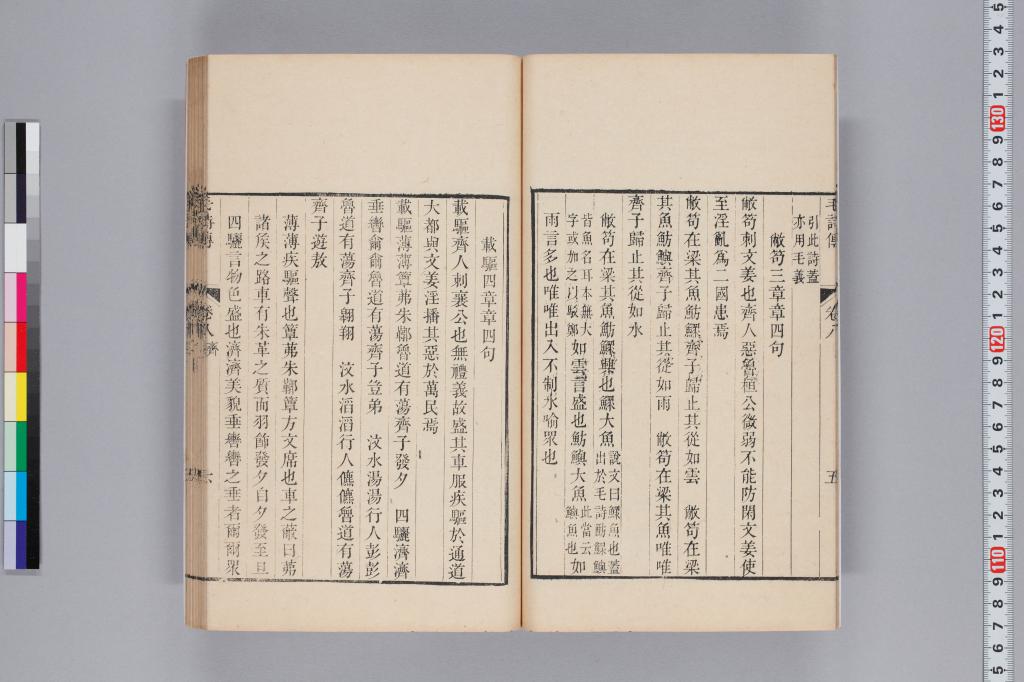 毛詩傳
卷八
五
引此詩蓋
亦用毛義
敝笱三章章四句
敝笱刺文姜也齊人惡魯桓公微弱不能防閑文姜使
至淫亂爲二國患焉
敝笱在梁其魚魴鰥齊子歸止其從如雲 敝笱在梁
其魚魴鱮齊子歸止其從如雨 敝笱在梁其魚唯唯
齊子歸止其從如水
敝笱在梁其魚魴鰥興也鰥大魚
說文曰鰥魚也蓋
出於毛詩魴鰥鱮
皆魚名耳本無大
此當云
字或加之以駁鄭
如雲言盛也魴鱮大魚
鱮魚也如
雨言多也唯唯出入不制水喻眾也
載驅四章章四句
載驅齊人刺襄公也無禮義故盛其車服疾驅於通道
大都與文姜淫播其惡於萬民焉
載驅薄薄簟茀朱鞹魯道有蕩齊子發夕 四驪濟濟
垂轡爾爾魯道有蕩齊子豈弟 汶水湯湯行人彭彭
魯道有蕩齊子翱翔 汶水滔滔行人儦儦魯道有蕩
齊子遊敖
薄薄疾驅聲也簟茀朱鞹簟方文席也車之蔽曰茀
諸矦之路車有朱革之質而羽飾發夕自夕發至旦
四驪言物色盛也濟濟美貌垂轡轡之垂者爾爾眾
毛詩傳
卷八 齊
六
5
4
3
2
1
130
9
8
7
6
5
4
3
2
1
120
9
8
7
6
5
4
3
2
1
110
9
8
7
6
5